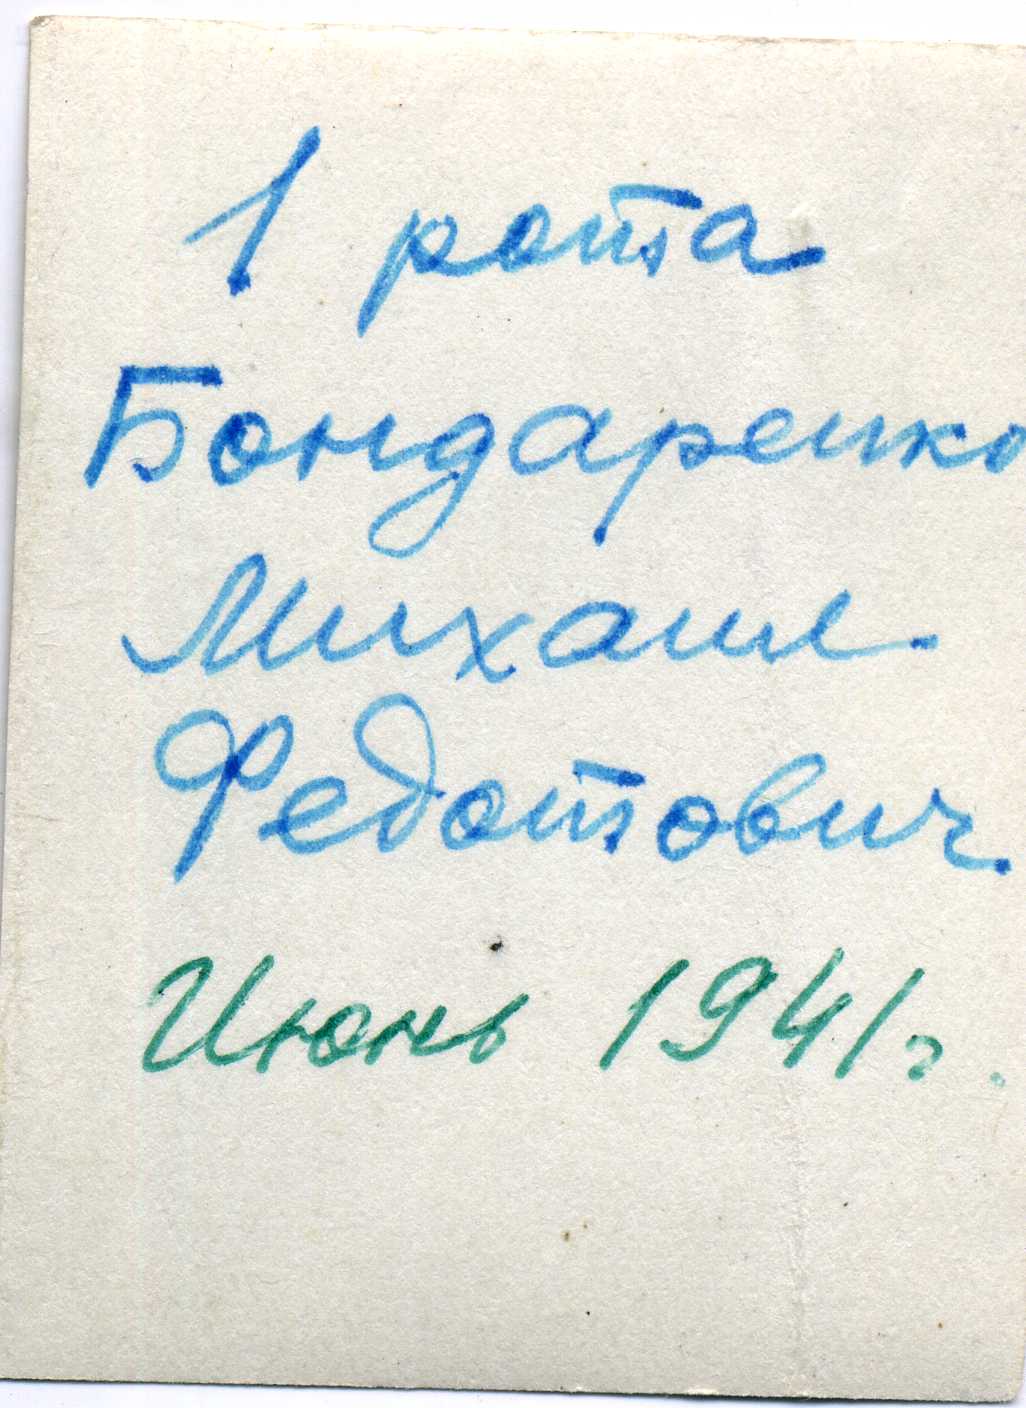 1 рота
Бондаренко
Михаил
Федотович
Июнь 1941 г.